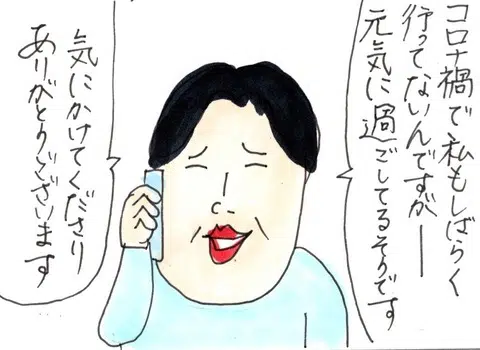 コロナ禍で私もしばらく
行ってないんですが――
元気に過ごしてるそうです
気にかけてくださり
ありがとうございます